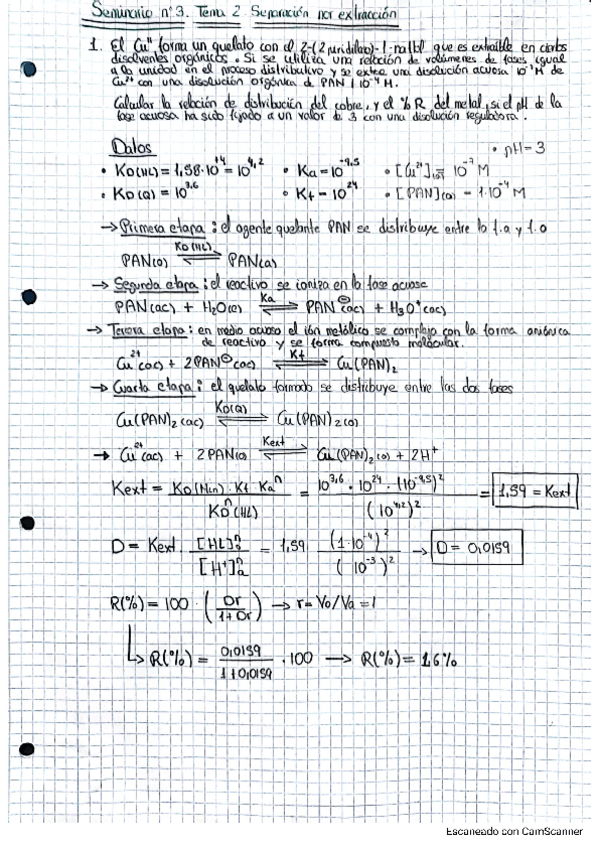 Seminario nº3. Tema 2 Separación por extracción
1. El Cu" forma un quelato con el 2-(2 piridilazo)-1-naftol que es extraíble en ciertos
disolventes orgánicos. Si se utiliza una relación de volúmenes de fases igual
a la unidad en el proceso distributivo y se extrae una disolución acuosa 10⁻⁷M de
Cu²⁺ con una disolución orgánica de PAN 1·10⁻⁴M.
Calcular la relación de distribución del cobre, y el % R del metal, si el pH de la
fase acuosa ha sido fijado a un valor de 3 con una disolución reguladora.
Datos
• pH=3
• KD(HL)=1,58·10⁺⁴=10⁴,² • Ka=10⁻⁹,⁵ • [Cu²⁺]TOT= 10⁻⁷ M
• KD(Q)= 10³,⁶ • Kf=10²⁴ • [PAN](o) = 1·10⁻⁴ M
→ Primera etapa: el agente quelante PAN se distribuye entre la f.a y f.o
KD(HL)
PAN(o) ⇌ PAN(a)
→ Segunda etapa: el reactivo se ioniza en la fase acuosa
PAN(ac) + H₂O(e) Ka ⇌ PAN⊖(ac) + H₃O⁺(ac)
→ Tercera etapa: en medio acuoso el ión metálico se compleja con la forma aniónica
de reactivo y se forma compuesto molécular.
Cu²⁺(ac) + 2PAN⊖(ac) Kf ⇌ Cu(PAN)₂
→ Cuarta etapa: el quelato formado se distribuye entre las dos fases
Cu(PAN)₂(ac) KD(Q) ⇌ Cu(PAN)₂(o)
→ Cu²⁺(ac) + 2PAN(o) Kext ⇌ Cu(PAN)₂(o) + 2H⁺
Kext = KD(MLn)·Kf·Kaⁿ / KDⁿ(HL) = 10³,⁶·10²⁴·(10⁻⁹,⁵)² / (10⁴,²)² = 1,59 = Kext
D = Kext· [HL]ⁿo / [H⁺]ⁿa = 1,59 (1·10⁻⁴)² / (10⁻³)² → D = 0,0159
R(%) = 100·(Dr / 1+Dr) → r=Vo/Va=1
R(%) = 0,0159 / 1+0,0159 ·100 → R(%)= 1,6%
Escaneado con CamScanner